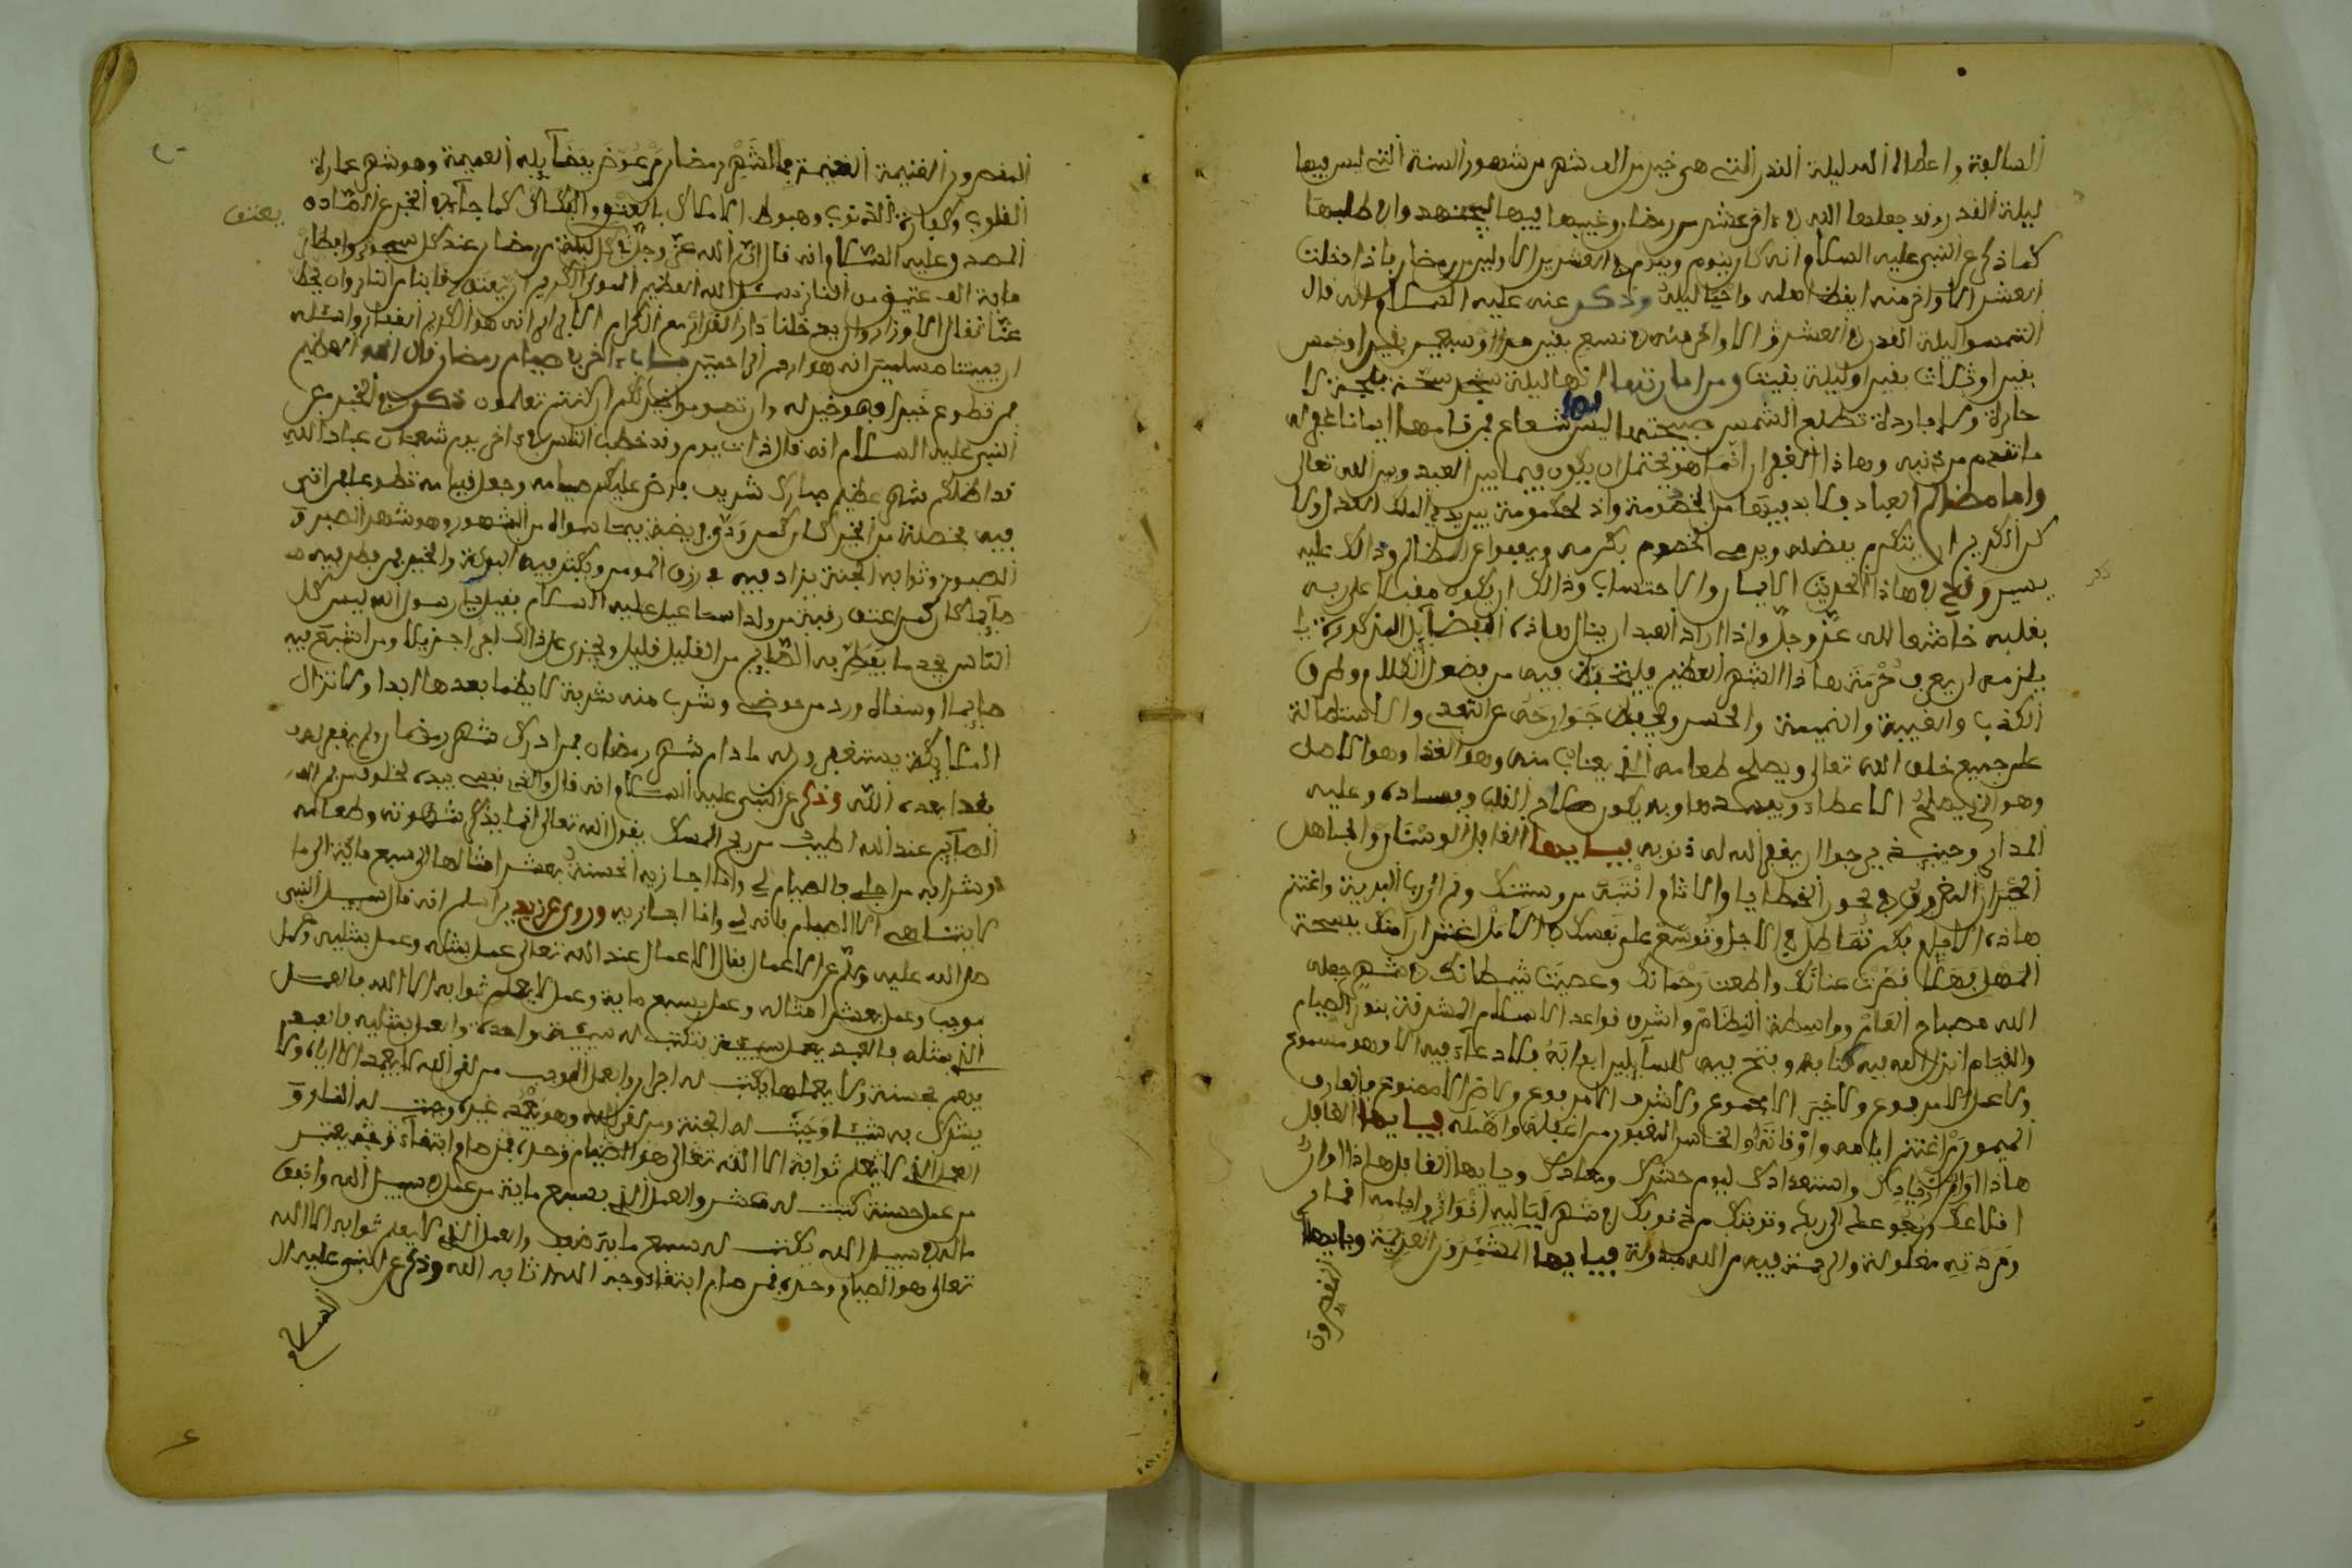 السالفة واعطاه الله ليلة القدر التي هي خير من الف شهر من شهور السنة التي ليس فيها
ليلة القدر وقد جعلها الله في ءاخر عشر من رمضان وغيبها فيها ليجتهدوا في طلبها
كما ذكر عن النبي عليه السلام انه كان ينوم ويقوم في العشرين الاولين من رمضان فاذا دخلت
العشر الاواخر منه ايقظ اهله واحيا ليله وذكر عنه عليه السلام انه قال
التمسوا ليلة القدر في العشر الاواخر منه في تسع بقين او سبع بقين او خمس
بقين او ثلاث بقين او ليلة بقيت ومن امارتها انها ليلة
حارة ولا باردة تطلع الشمس صبيحتها ليس لها شعاع فمن قامها ايمانا غفر له
ما تقدم من ذنبه وهاذا الغفران انما هو يحتمل ان يكون فيما بين العبد وبين الله تعالى
واما مظالم العباد فلا بد فيها من الخصومة والحكومة بين يدي الملك العدل ولا
كن الكريم ان يتكرم بفضله ويرضي الخصوم بكرمه ويعفوا عن المظالم وذالك عليه
يسير وقال في هاذا الحديث الايمان والاحتساب وذالك ان يكون مقبلا على ربه
بقلبه خاشعا لله عز وجل واذا اراد العبد ان ينال هاذه الفضايل المذكورة
يلزمه ان يعرف حرمة هاذا الشهر العظيم فليتحفظ فيه من فضول الكلام وطرق
الكذب والغيبة والنميمة والحسد ويحفظ جوارحه عن التعدي والاستطالة
على جميع خلق الله تعالى ويصلح طعامه الذي يقتات منه وهو الغذا وهو الاصل
وهو الذي يصلح الاعضاء ويفسدها وبه يكون صلاح القلب وفساده وعليه
المدار وحينئذ يرجوا ان يغفر الله له ذنوبه فيايها الغافل الوسنان والجاهل
الحيران المغروق في بحور الخطايا والاثام انتبه من وسنك وقم الى رب البرية واغتنم
هاذه الايام فكم تماطل في الاجل وتوسع على نفسك في الامل
المهل فهلا قصرت عنانك واطعت رحمانك وعصيت شيطانك في شهر جعله
الله مصباح العام وواسطة النظام واشرف قواعد الاسلام المشرفة بنور الصيام
والقيام انزل الله فيه كتابه وفتح فيه للسايلين ابوابه فلا دعاء فيه الا وهو مسموع
ولا عمل الا مرفوع ولا خير الا مجموع ولا شرف الا مرفوع ولا ضر الا ممنوع فالعارف
الميمون من اغتنم ايامه واوقاته والخاسر المغبون من اغفله واهمله فيايها الغافل
هاذا اوان ازديادك واستعدادك ليوم حشرك ومعادك ويايها الغافل هاذا اوان
اقلاعك ورجوعك الى ربك وتوبتك من ذنوبك في شهر لياليه انوار وايامه اقمار
ومردته مغلولة والرحمة فيه من الله مبذولة فيايها المشمرون العزيمة ويايها
المقصرون
المقصرون الغنيمة الغنيمة فما لشهر رمضان من عوض بفضايله العميمة وهو شهر عمارة
القلوب وكفارة الذنوب وهبوط الاملاك بالعتق والفكاك كما جاء في الخبر عن الصادق
المصدوق عليه السلام انه قال ان لله عز وجل في كل ليلة من رمضان عند كل سحور وافطار
ماية الف عتيق من النار نسئل الله العظيم المولى الكريم ان يعتق رقابنا من النار وان يحط
عنا اثقال الاوزار وان يدخلنا دار القرار مع الكرام الابرار انه هو الكريم الغفار واسئله
ان يميتنا مسلمين انه هو ارحم الراحمين باب ءاخر في صيام رمضان قال الله العظيم
فمن تطوع خيرا فهو خير له وان تصوموا خير لكم ان كنتم تعلمون ذكر في الخبر عن
النبي عليه السلام انه قال ذات يوم وقد خطب الناس في ءاخر يوم شعبان عباد الله
قد اظلكم شهر عظيم مبارك شريف فرض عليكم صيامه وجعل قيامه تطوعا فمن اتى
فيه بخصلة من الخير كان كمن ودى فريضة فيما سواه من الشهور وهو شهر الصبر و
الصبر وثوابه الجنة يزاد فيه في رزق المومن ويكثر فيه البركة والخير فمن فطر فيه
صايما كان كمن اعتق رقبة من ولد اسماعيل عليه السلام فقيل يا رسول الله ليس كل
الناس يجد ما يفطر به الصايم من القليل قليل ويجزى على ذالك اجرا جزيلا ومن اشبع فيه
صايما او سقاه ورد من حوضي وشرب منه شربة لا يظما بعدها ابدا ولا تزال
الملايكة يستغفرون له ما دام شهر رمضان فمن ادرك شهر رمضان ولم يغفر له
فقد ابعده الله وذكر عن النبي عليه السلام انه قال والذي نفسي بيده لخلوف فم
الصايم عند الله اطيب من ريح المسك يقول الله تعالى انما يذكر شهوته وطعامه
وشرابه من اجلي فالصيام لي وانا اجازي به الحسنة بعشر امثالها الى سبع ماية الى ما
لا يتناهى الا الصيام فانه لي وانا اجازي به وروي عن زيد بن اسلم انه قال سيل النبي
صلى الله عليه وسلم عن الاعمال فقال الاعمال عند الله تعالى عمل بمثله وعمل بمثليه وعمل
موجب وعمل بعشر امثاله وعمل بسبع ماية وعمل لا يعلم ثوابه الا الله فالعمل
الذي بمثله فالعبد يعمل سيئة تكتب له سيئة واحدة والعمل بمثليه فالعبد
يهم بحسنة ولا يعملها يكتب له اجران والعمل الموجب من لقي الله لا يعبد الا اياه ولا
يشرك به شيئا وجبت له الجنة ومن لقي الله وهو يعبد غيره وجبت له النار و
العمل الذي لا يعلم ثوابه الا الله تعالى هو الصيام وحده فمن صام ابتغاء
من عمل حسنة كتبت له عشر والعمل الذي بسبع ماية من عمل في سبيل الله وانفق
ماله في سبيل الله يكتب له سبع ماية ضعف والعمل الذي لا يعلم ثوابه الا الله
تعالى هو الصيام وحده فمن صام ابتغاء وجه الله اثابه الله وذكر عن النبي عليه ال
السلام